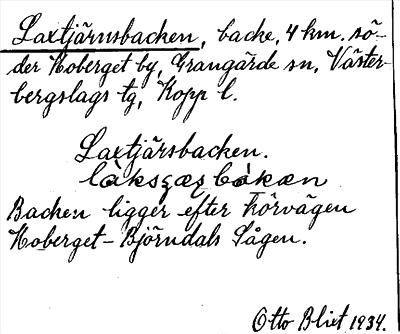 Laxtjärnsbacken, backe, 4 km. sö-
der Hoberget by, Grangärde sn, Väster-
bergslags tg, Kopp l.
Laxtjärsbacken.
Backen ligger efter körvägen
Hoberget-Björndals Sågen.
Otto Blixt 1934.